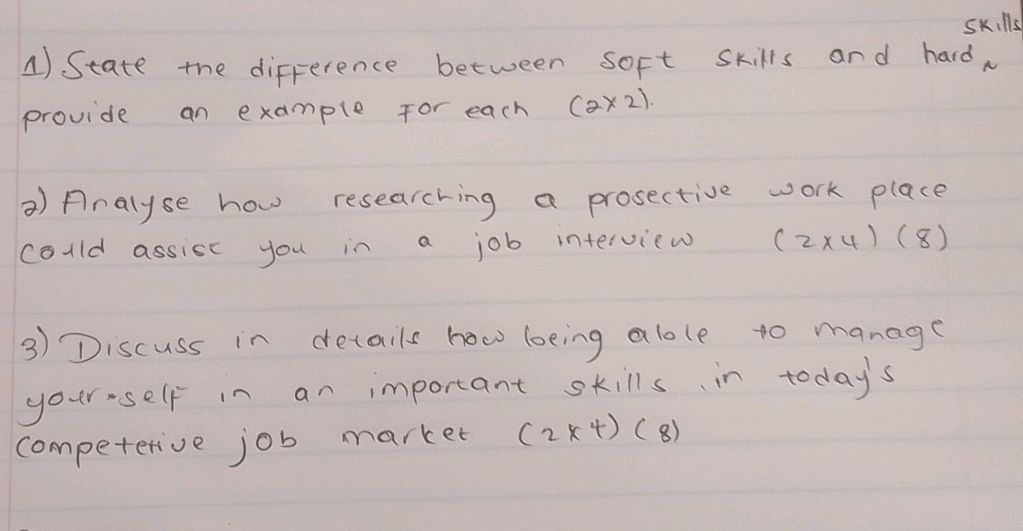 1) State the difference between soft skills and hard skills
provide an example for each (2x2).
2) Analyse how researching a prosective work place
could assist you in a job interview (2x4) (8)
3) Discuss in details how being able to manage
your-self in an important skills in today's
competetive job market (2x4) (8)